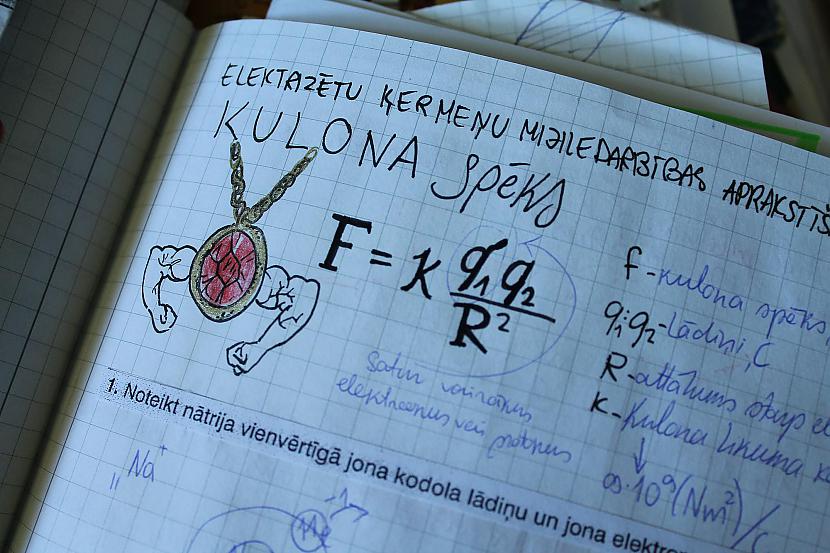 ELEKTRIZĒTU ĶERMEŅU MIJIEDARBĪBAS APRAKSTĪŠ
KULONA SPĒKS
F = K q₁q₂ / R²
F - kulona spēks,
q₁; q₂ - Lādiņi, C
R - attālums starp el
K - Kulona likuma k
9·10⁹ (Nm²)/C
Satur vairākus
elektronus vai protonus
1. Noteikt nātrija vienvērtīgā jona kodola lādiņu un jona elektro
„Na⁺
-1